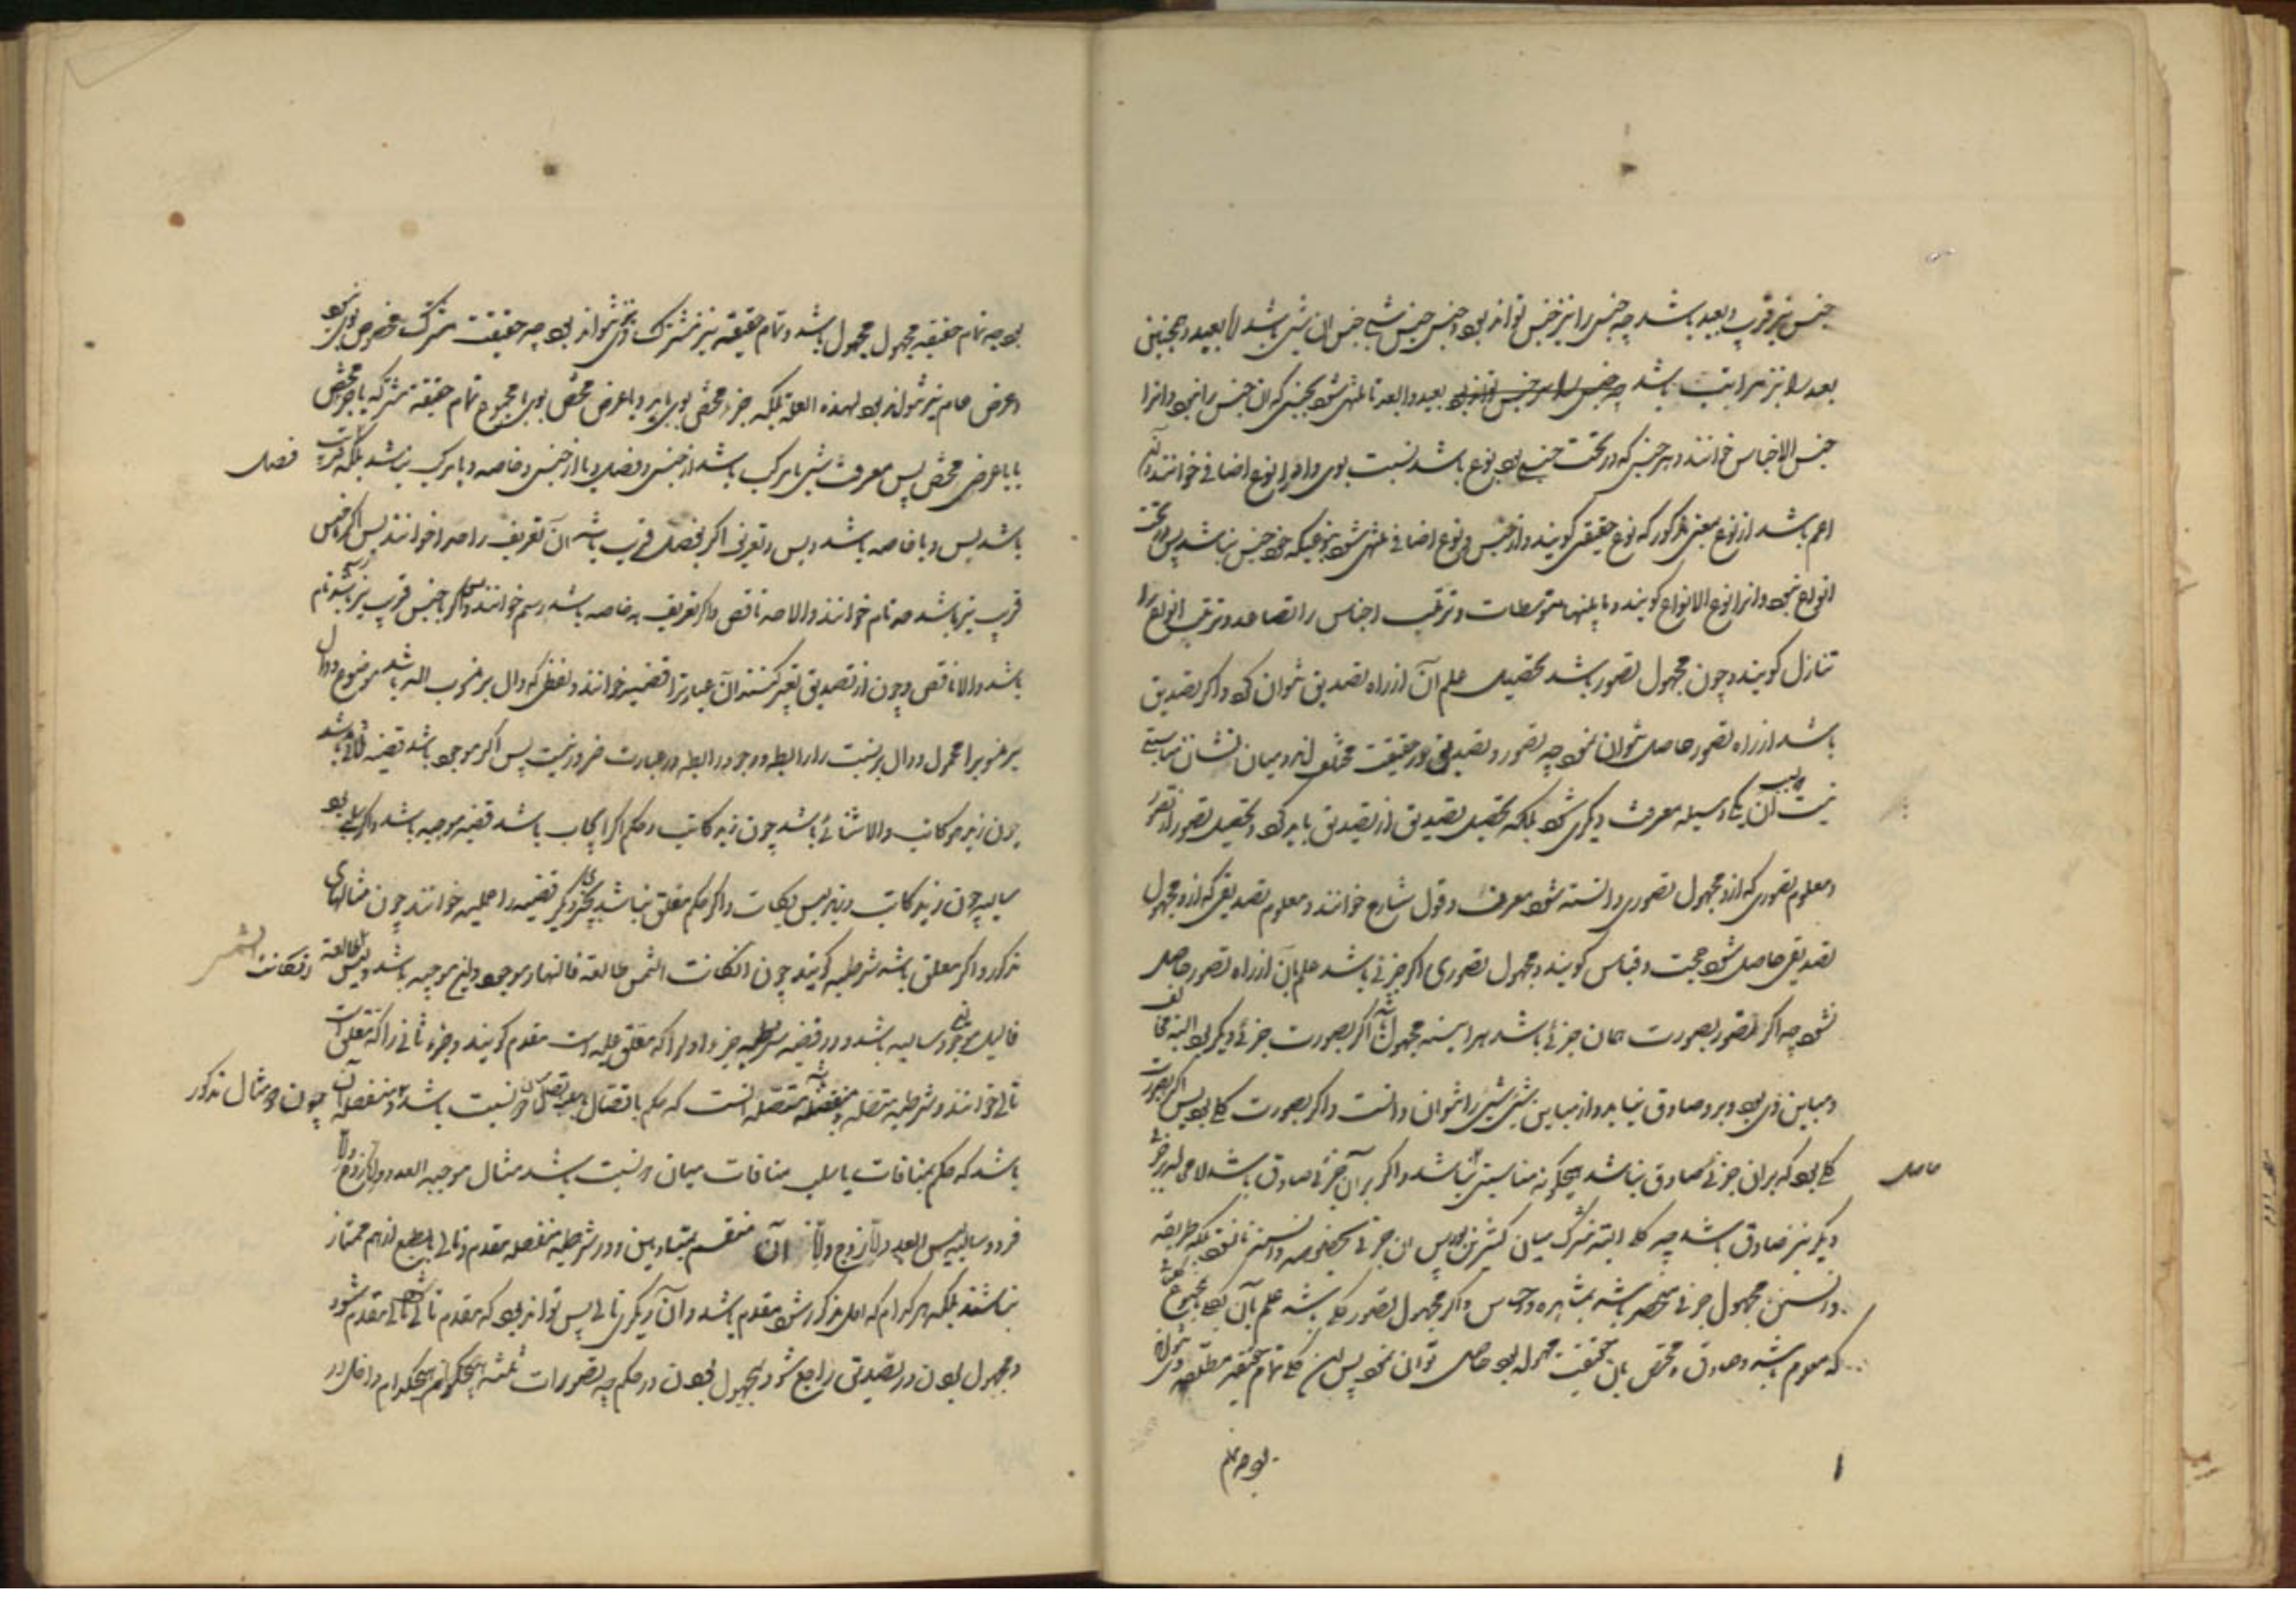 جنس نیز قریب و بعید باشد چه جنس را نیز جنس تواند بود و جنس جنس شی جنس ان شی باشد اما بعید و همچنین
بعد را نیز مراتب باشد بعید و ابعد تا منتهی شود بجنسی که ان جنس را نبود و انرا
جنس الاجناس خوانند و هر جنس که در تحت جنسی بود نوع باشد نسبت بوی و او را نوع اضافی خوانند و ان
اعم باشد از نوع بمعنی مذکور که نوع حقیقی کویند و از جنس و نوع اضافی منتهی شود بنوعیکه خود جنس نباشد پس در تحت
انواع نبود و انرا نوع الانواع کویند و ما بینهما متوسطات و ترتیب اجناس را تصاعد و ترتیب انواع را
تنازل کویند و چون مجهول تصور باشد تحصیل علم آن از راه تصدیق نتوان کرد و اکر تصدیق
باشد از راه تصور حاصل نتوان نمود چه تصور و تصدیق در حقیقت مختلف اند و میان نشان مناسبتی
نیست آن یکی وسیله معرفت دیکری شود بلکه تحصیل تصدیق از تصدیق باید کرد و تحصیل تصور از تصور
و معلوم تصوری که ازو مجهول تصوری دانسته شود معرف و قول شارح خوانند و معلوم تصدیقی که ازو مجهول
تصدیقی حاصل شود حجت و قیاس کویند و مجهول تصوری اکر جزئی باشد علم بآن از راه تصور حاصل
نشود چه اکر تصور بصورت همان جزئی باشد هر اینه مجهول اکر بصورت جزئی دیکر بود البته مخالف
و مباین وی بود و برو صادق نیاید و از مباین شی شی را نتوان دانست و اکر بصورت کلی بود پس اکر بصورت
کلی بود که بران جزئی صادق نباشد هیچکونه مناسبتی نباشد و اکر بر آن جزئی صادق باشد لا محاله بر جزئی
حاصل
دیکر نیز صادق باشد چه کلی البته مشترک میان کثیرین بود پس ان جزئی بخصوصه دانسته نشود بلکه طریقه
دانستن مجهول جزئی منحصر باشد بمشاهده و حواس و اکر مجهول تصور کلی باشد علم بآن بمجموع
که معلوم باشد و صادق و مختص بان حقیقت مجهوله بود حاصل توان نمود پس این کلی تمام حقیقه مطلقه
بود چه تمام
بود چه تمام حقیقه مجهول مجهول باشد و تمام حقیقه نیز مشترک نتواند بود چه حقیقت مشترک مخصوص بوی نبود
و عرض عام نیز نتواند بود لهذه العله بلکه جزء مختص بوی باید و یا عرض مختص بوی یا مجموع تمام حقیقه مشترکه با جزء مختص
یا با عرض مختص پس معرف شی یا مرکب باشد از جنس و فصل و یا از جنس و خاصه و یا مرکب نباشد بلکه
فصل
باشد پس و یا خاصه باشد و بس و تعریف اکر بفصل قریب باشد ان تعریف را حد خوانند پس اکر با جنس
قریب نیز باشد حد تام خوانند و الا حد ناقص و اکر تعریف به خاصه باشد رسم خوانند و اکر با جنس قریب نیز باشد رسم تام
باشد و الا ناقص و چون از تصدیق تعبیر کنند ان عبارترا قضیه خوانند و لفظی که دال بر منسوب الیه باشد موضوع و دال
بر منسوبرا محمول و دال بر نسبت را رابطه و وجود رابطه در عبارت ضرور نیست پس اکر موجود باشد قضیه ثلاثی باشد
چون زید هو کاتب و الا ثنائی باشد چون زید کاتب و حکم اکر ایجاب باشد قضیه موجبه باشد و اکر سلب بود
سالبه چون زید کاتب و زید لیس بکاتب و اکر حکم معلق نباشد بچیزی دیکر قضیه را حملیه خوانند چون مثالهای
مذکور و اکر معلق باشد شرطیه کویند چون ان کانت الشمس طالعة فالنهار موجود و این موجبه باشد و لیس ان کانت الشمس طالعة
فاللیل موجود سالبه باشد و در قضیه شرطیه جزء اول را که معلق علیه است مقدم کویند و جزء ثانی را که متعلق است
تالی خوانند و شرطیه متصله و منفصله باشد متصله انست که حکم باتصال یا سلب اتصال دو نسبت باشد و منفصله آن چون دو مثال مذکور
باشد که حکم بمنافات یا سلب منافات میان دو نسبت باشد مثال موجبه العدد اما زوج و اما
فرد و سالبه لیس العدد اما زوج و اما ان منقسم بمتساویین و در شرطیه منفصله مقدم و تالی بالطبع از هم ممتاز
نباشند بلکه هر کدام که اول مذکور شود مقدم باشد و آن دیکری تالی پس تواند بود که مقدم تالی شود و تالی مقدم شود
و مجهول بودن در تصدیق راجع شود بمجهول بودن در حکم چه تصورات ثلثه هیچکدام داخل در